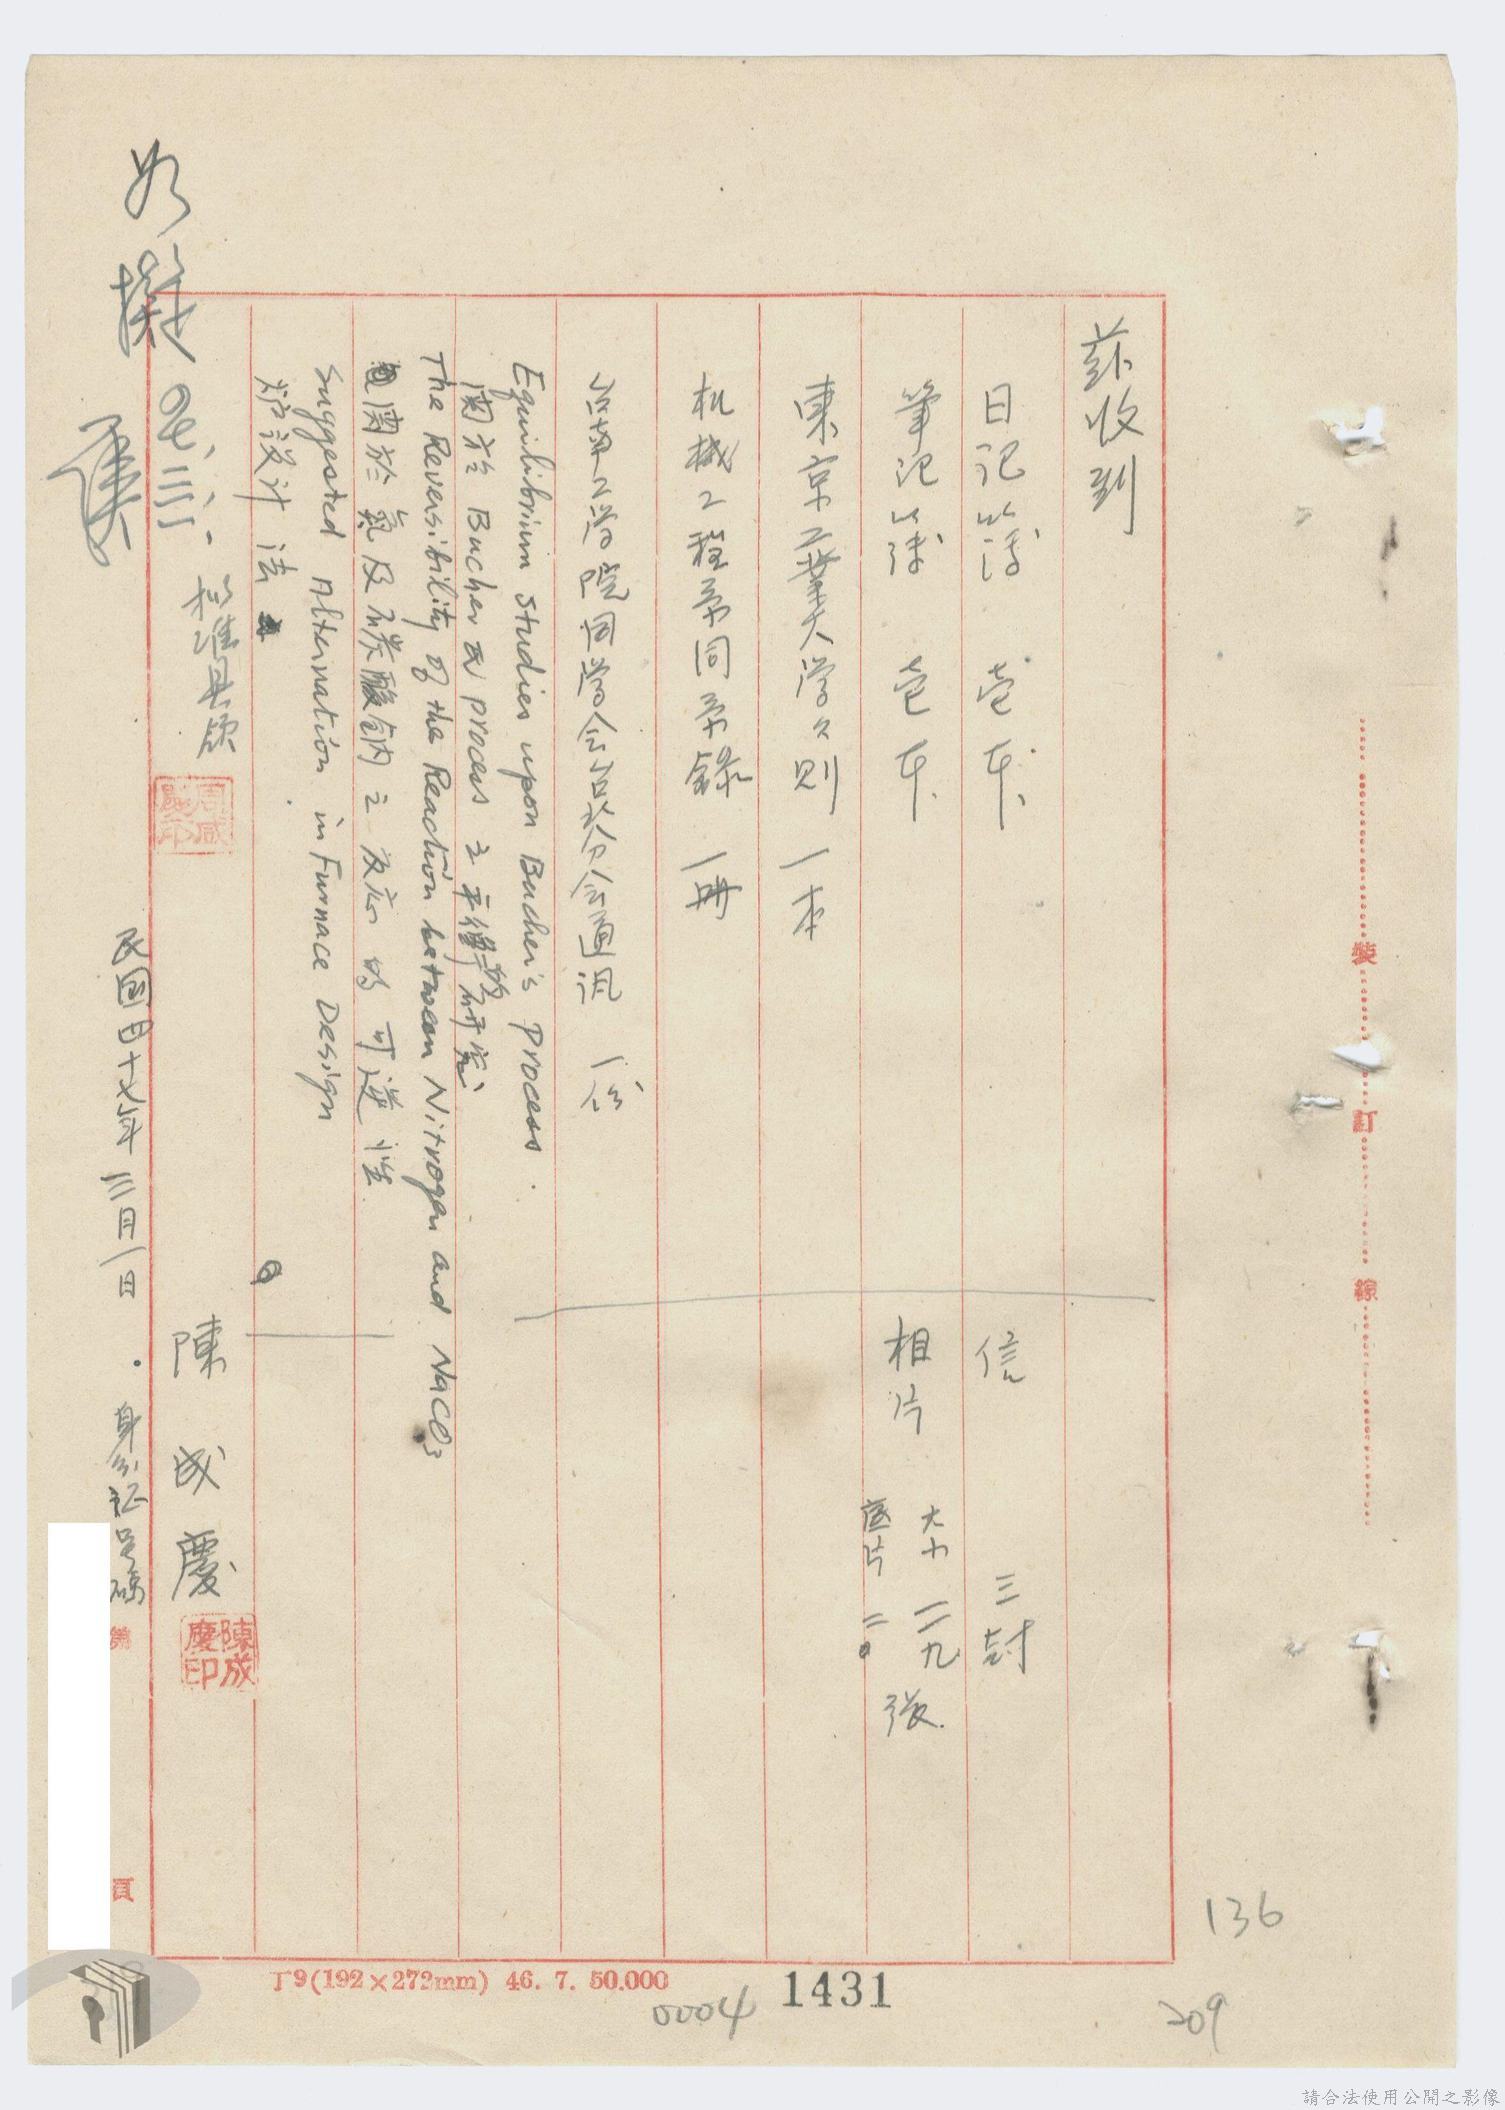 茲收到
日記簿 壱本、
信 三封
筆記簿 壱本、
相片 大小 一二九
底片 二〇 張.
東京工業大学々則 一本
机械工程系同系錄 一冊
工学院同学会台北分会通訊 一份
Equilibrium studies upon Bucher's process.
関於 Bucher 氏 process 之平衡 研究
The Reversibility of the Reaction between Nitrogen and NaCO3
関於氮及碳酸鈉之反応的可逆性.
Suggested Alternation in Furnace Design
炉設計法
陳成慶
陳成慶印
如擬
批准具領
民國四十七年三月一日
身分証号碼
第
頁
裝
訂
線
T9(192×272mm) 46. 7. 50.000
0004
1431
136
209
請合法使用公開之影像